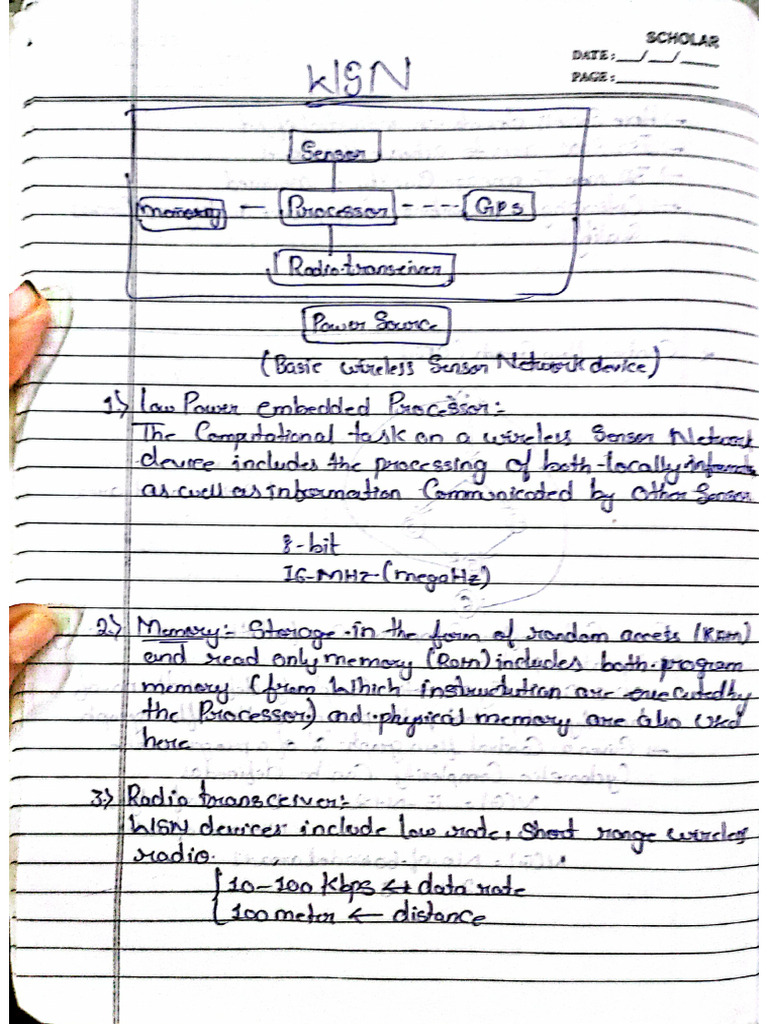 SCHOLAR
DATE:__/__/____
PAGE:________
WSN
Sensor
Memory - Processor - - - - GPS
Radio transeiver
Power Source
(Basic wireless Sensor Network device)
1.) low Power embedded Processor:-
The Computational task on a wireless Sensor Network
device includes the processing of both locally
as well as information Communicated by other Sensor
8-bit
16-MHz-(megaHz)
2.) Memory:- Storage in the form of random access (RAM)
and read only memory (ROM) includes both program
memory (from which instrudution are executed by
the Processor) and physical memory are also used
here
3.) Radio transceiver:-
WSN devices include low rate, short range wireless
radio.
10-100 Kbps ↔ data rate
100 meter ← distance